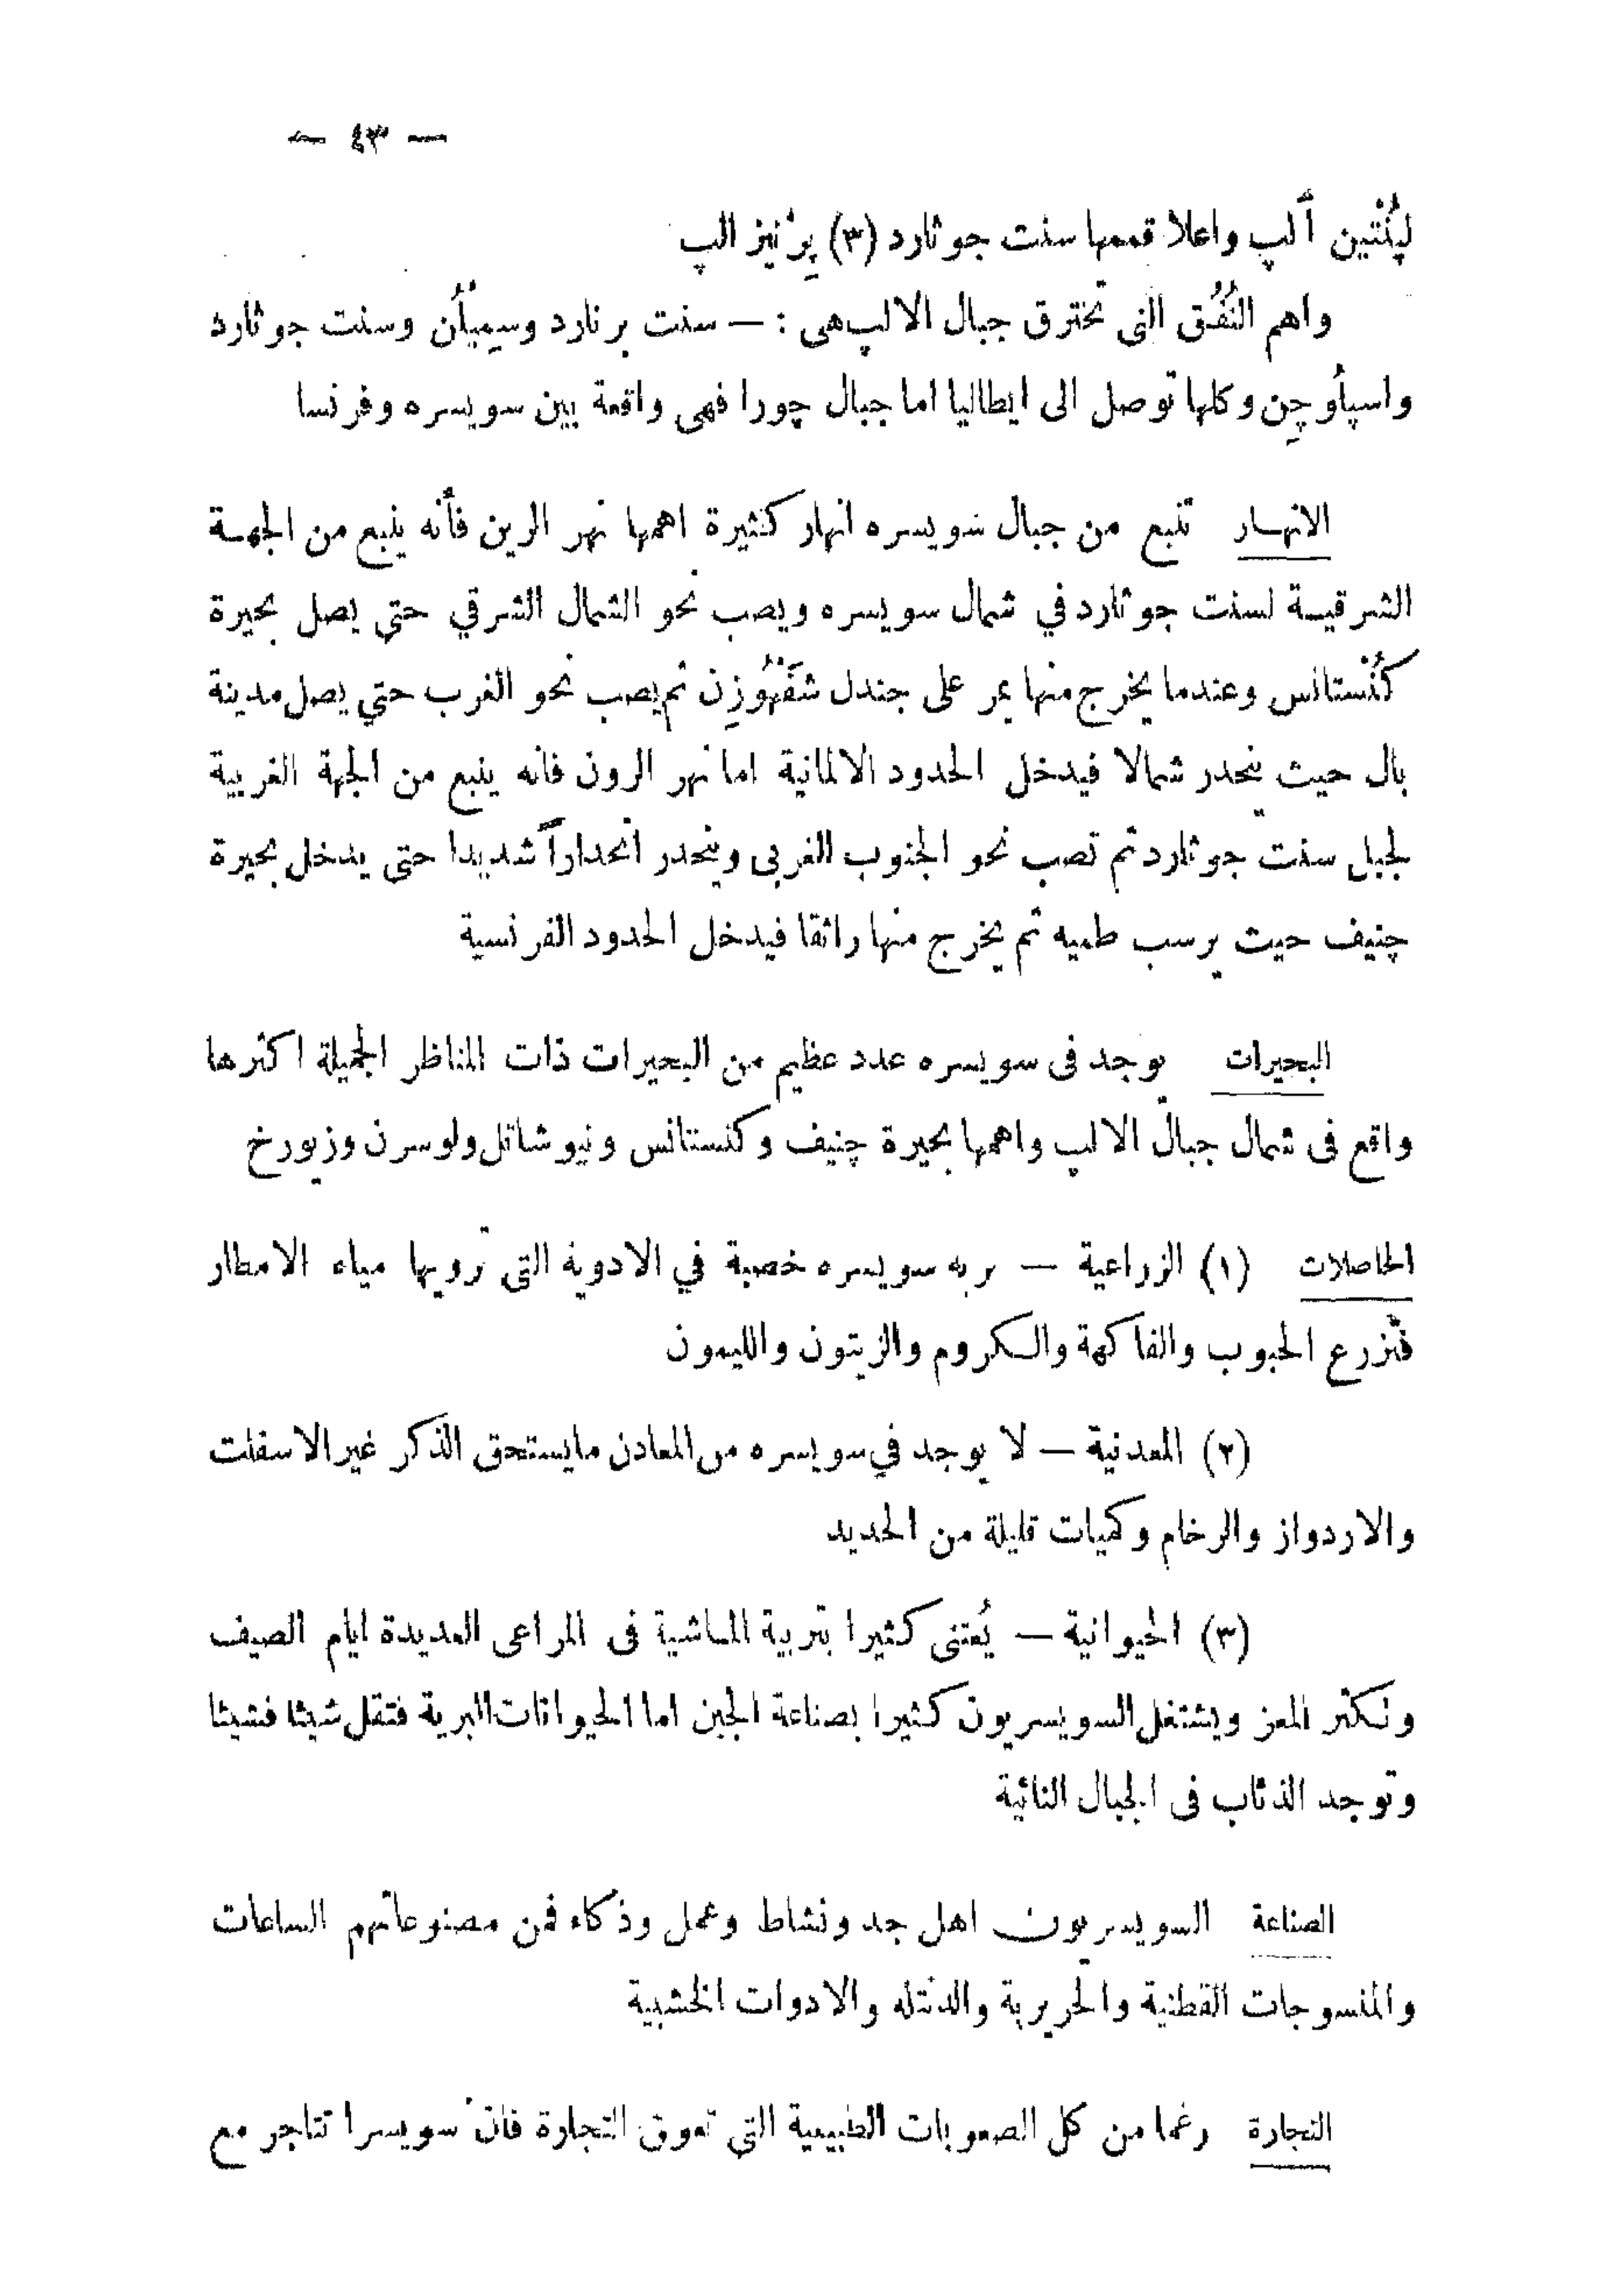 — ٤٣ —
لِپُنْتين ألپ واعلا قممها سنت جوثارد (٣) بِرْنيز الپ
واهم النُفُق التى تخترق جبال الالپ هى : — سنت برنارد وسِمِبْلُن وسنت جوثارد
واسپلوچِن وكلها توصل الى ايطاليا اما جبال چورا فهى واقعة بين سويسره وفرنسا
الانهـار تنبع من جبال سويسره انهار كثيرة اهمها نهر الرين فأنه ينبع من الجهـة
الشرقيـة لسنت جوثارد في شمال سويسره ويصب نحو الشمال الشرقي حتى يصل بحيرة
كُنْستانس وعندما يخرج منها يمر على جندل شَفْهُوزِن ثم يصب نحو الغرب حتي يصل مدينة
بال حيث ينحدر شمالا فيدخل الحدود الالمانية اما نهر الرون فانه ينبع من الجهة الغربية
لجبل سنت جوثارد ثم تصب نحو الجنوب الغربى وينحدر انحداراً شديدا حتى يدخل بحيرة
چنيف حيت يرسب طميه ثم يخرج منها رائقا فيدخل الحدود الفرنسية
البحيرات يوجد فى سويسره عدد عظيم من البحيرات ذات المناظر الجميلة اكثرها
واقع فى شمال جبال الالپ واهمها بحيرة چنيف وكنستانس ونيوشاتل ولوسرن وزيورخ
الحاصلات (١) الزراعية — تربه سويسره خصبة في الادوية التى ترويها مياه الامطار
فتُزرع الحبوب والفاكهة والكروم والزيتون والليمون
(٢) المعدنية — لا يوجد في سويسره من المعادن ما يستحق الذكر غير الاسفلت
والاردواز والرخام وكميات قليلة من الحديد
(٣) الحيوانية — يُعتنى كثيرا بتربية الماشية فى المراعى العديدة ايام الصيف
وتكثر المعز ويشتغل السويسريون كثيرا بصناعة الجبن اما الحيوانات البرية فتقل شيئا فشيئا
وتوجد الذئاب فى الجبال النائية
الصناعة السويسريون اهل جد ونشاط وعمل وذكاء فمن مصنوعاتهم الساعات
والمنسوجات القطنية والحريرية والدنتله والادوات الخشبية
التجارة رغما من كل الصعوبات الطبيعية التى تعوق التجارة فان سويسرا تتاجر مع